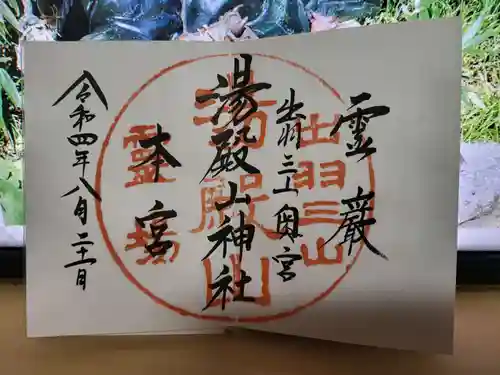 霊巌
出羽三山奥宮
湯殿山神社
本宮
令和四年八月二十一日
出羽三山
湯殿山
霊場